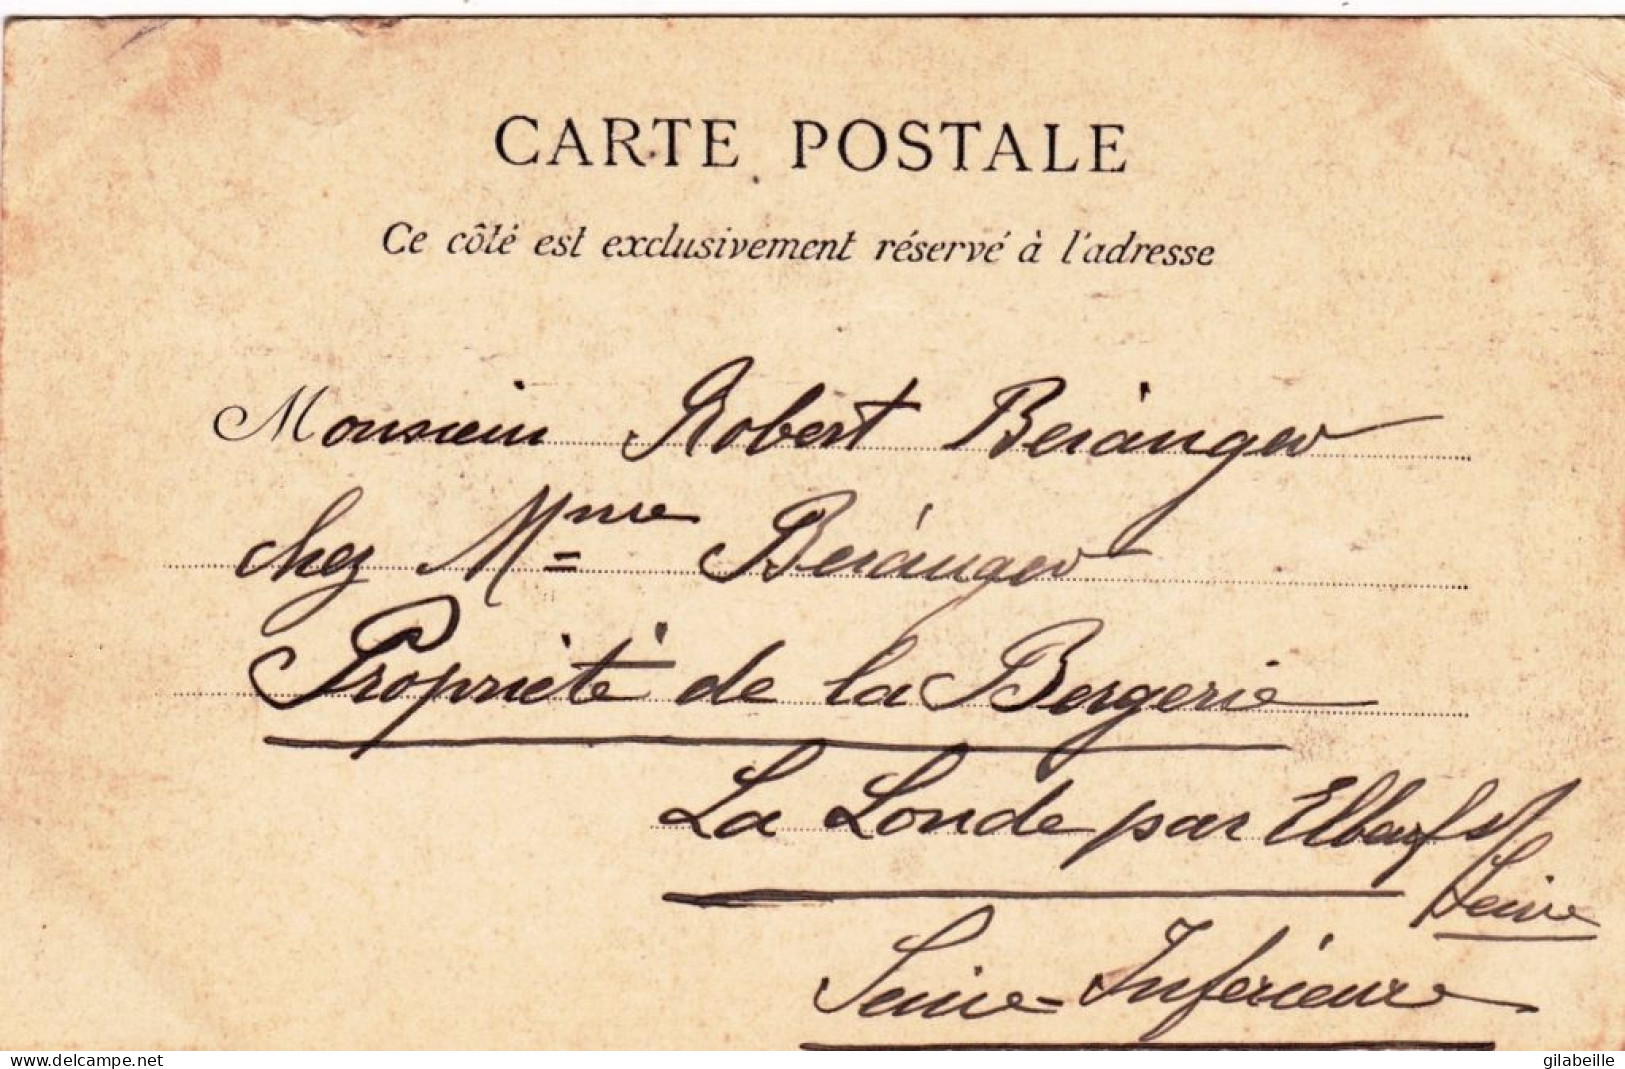 CARTE POSTALE
Ce côté est exclusivement réservé à l'adresse
Monsieur Robert Béranger
chez Mme Béranger
Propriété de la Bergerie
La Londe par Elbeuf s/
Seine
Seine-Inférieure
delcampe.net
gilabeille